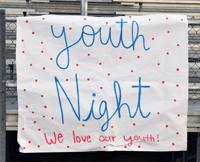 youth
Night
We love our youth!